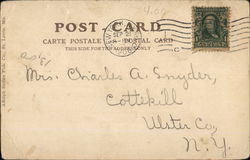 POST-CARD
CARTE POSTALE POSTAL CARD
THIS SIDE FOR THE ADDRESS ONLY
Mrs. Charles A. Snyder,
Cottekill
Ulster Co,
N.Y.